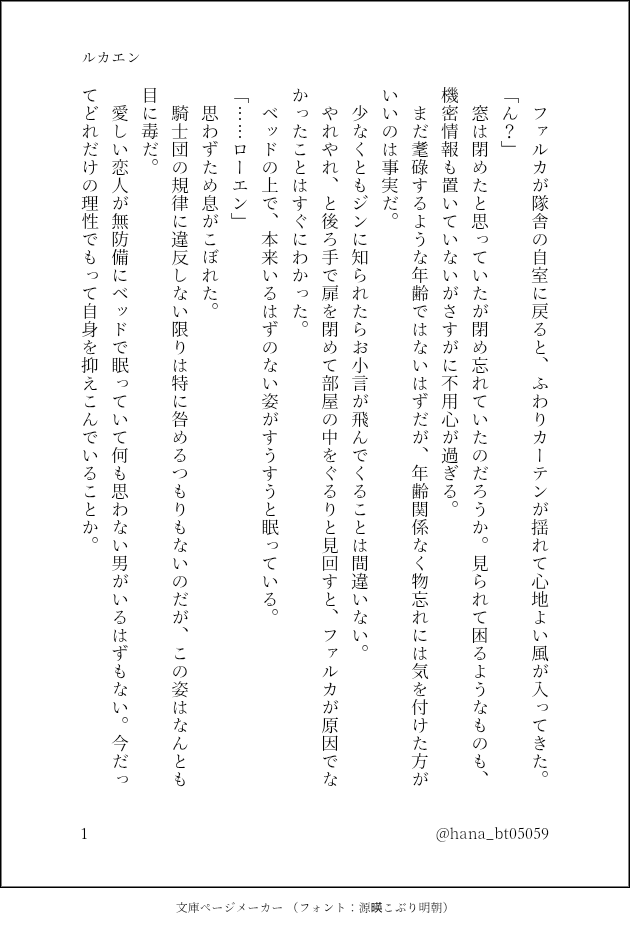 ルカエン
　ファルカが隊舎の自室に戻ると、ふわりカーテンが揺れて心地よい風が入ってきた。
「ん？」
　窓は閉めたと思っていたが閉め忘れていたのだろうか。見られて困るようなものも、
機密情報も置いていないがさすがに不用心が過ぎる。
　まだ耄碌するような年齢ではないはずだが、年齢関係なく物忘れには気を付けた方が
いいのは事実だ。
　少なくともジンに知られたらお小言が飛んでくることは間違いない。
　やれやれ、と後ろ手で扉を閉めて部屋の中をぐるりと見回すと、ファルカが原因でな
かったことはすぐにわかった。
　ベッドの上で、本来いるはずのない姿がすうすうと眠っている。
「……ローエン」
　思わずため息がこぼれた。
　騎士団の規律に違反しない限りは特に咎めるつもりもないのだが、この姿はなんとも
目に毒だ。
　愛しい恋人が無防備にベッドで眠っていて何も思わない男がいるはずもない。今だっ
てどれだけの理性でもって自身を抑えこんでいることか。
1
@hana_bt05059
文庫ページメーカー（フォント：源暎こぶり明朝）